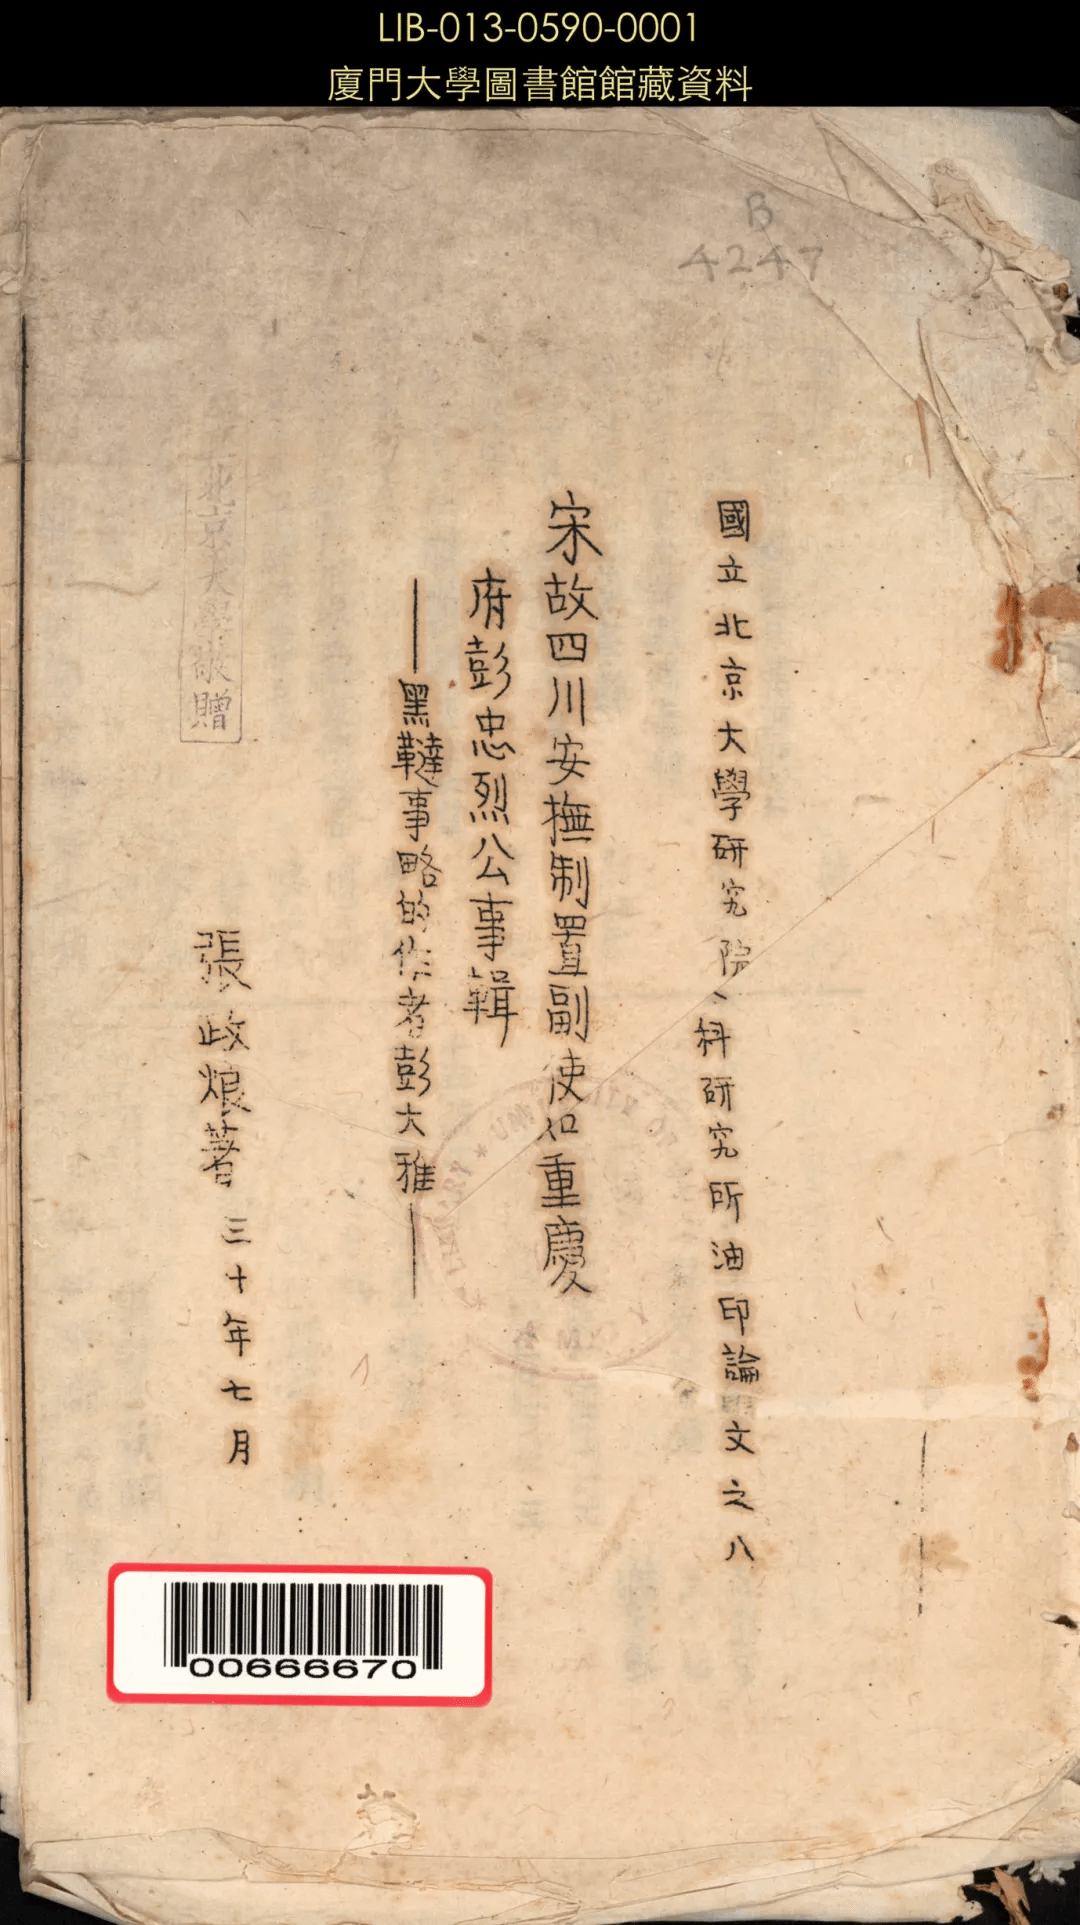 LIB-013-0590-0001
廈門大學圖書館館藏資料
B
4247
國立北京大學研究院、科研究所油印論文之八
宋故四川安撫制置副使知重慶
府彭忠烈公事輯
——黑韃事略的作者彭大雅——
張政烺著 三十年七月
北京大學敬贈
00666670